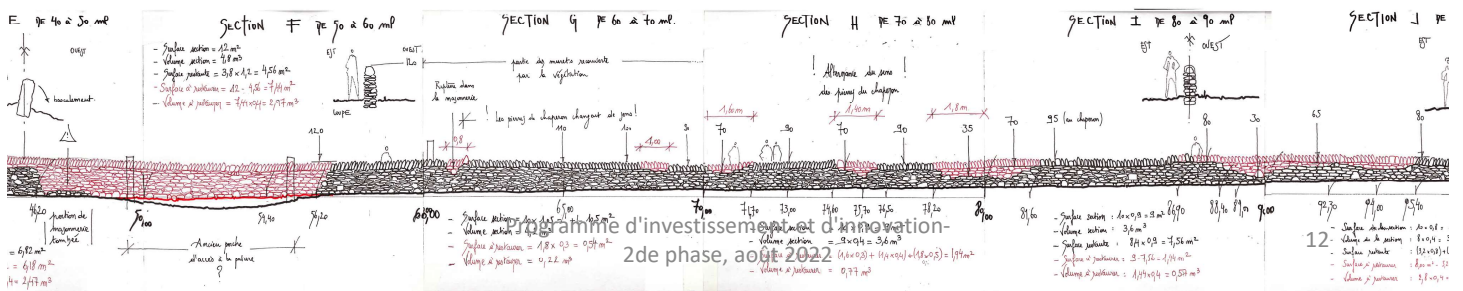 E DE 40 à 50 ml
OUEST
basculement
46,20
portion de
maçonnerie
tombée
= 6,82 m²
= 6,18 m²
= 2,47 m³
SECTION F DE 50 à 60 ml
- Surface section = 12 m²
- Volume section = 4,8 m³
- Surface restante = 3,8 x 1,2 = 4,56 m²
- Surface à restaurer = 12 - 4,56 = 7,44 m²
- Volume à restaurer = 7,44 x 0,4 = 2,97 m³
EST OUEST
120
COUPE
120
50,00 54,40 56,20
Ancien porche
d'accès à la pâture
?
SECTION G DE 60 à 70 ml.
partie des murets recouverte
par la végétation
Rupture dans
la maçonnerie
! Les pierres de chaperon changent de sens !
0,8 110 120 1,00
60,00 65,00 70,00
- Surface section = 10 x 1,05 = 10,5 m²
- Volume section
- Surface à restaurer = 1,8 x 0,3 = 0,54 m²
- Volume à restaurer = 0,22 m³
SECTION H DE 70 à 80 ml
! Alternance du sens !
des pierres du chaperon
1,60m 1,40m 1,8m
70 90 70 90 35 70
71,70 73,00 74,60 75,70 76,50 78,20 80,00
- Surface section = 10 x 0,9 = 9 m²
- Volume section = 9 x 0,4 = 3,6 m³
- Surface à restaurer = (1,6x0,3) + (1,4x0,4) + (1,8x0,5) = 1,94 m²
- Volume à restaurer = 0,77 m³
SECTION I DE 80 à 90 ml
EST OUEST
95 (au chaperon)
80 30
81,60 86,90 88,40 90,00
- Surface section : 10 x 0,9 = 9 m²
- Volume section : 3,6 m³
- Surface restante : 8,4 x 0,9 = 7,56 m²
- Surface à restaurer : 9 - 7,56 = 1,44 m²
- Volume à restaurer : 1,44 x 0,4 = 0,57 m³
SECTION J DE
EST
65 80
92,70 94,00 95,40
- Surface de la section : 10 x 0,8 =
- Volume de la section : 8 x 0,4 = 3
- Surface restante
- Surface à restaurer
- Volume à restaurer
Programme d'investissement et d'innovation-
2de phase, août 2022
12